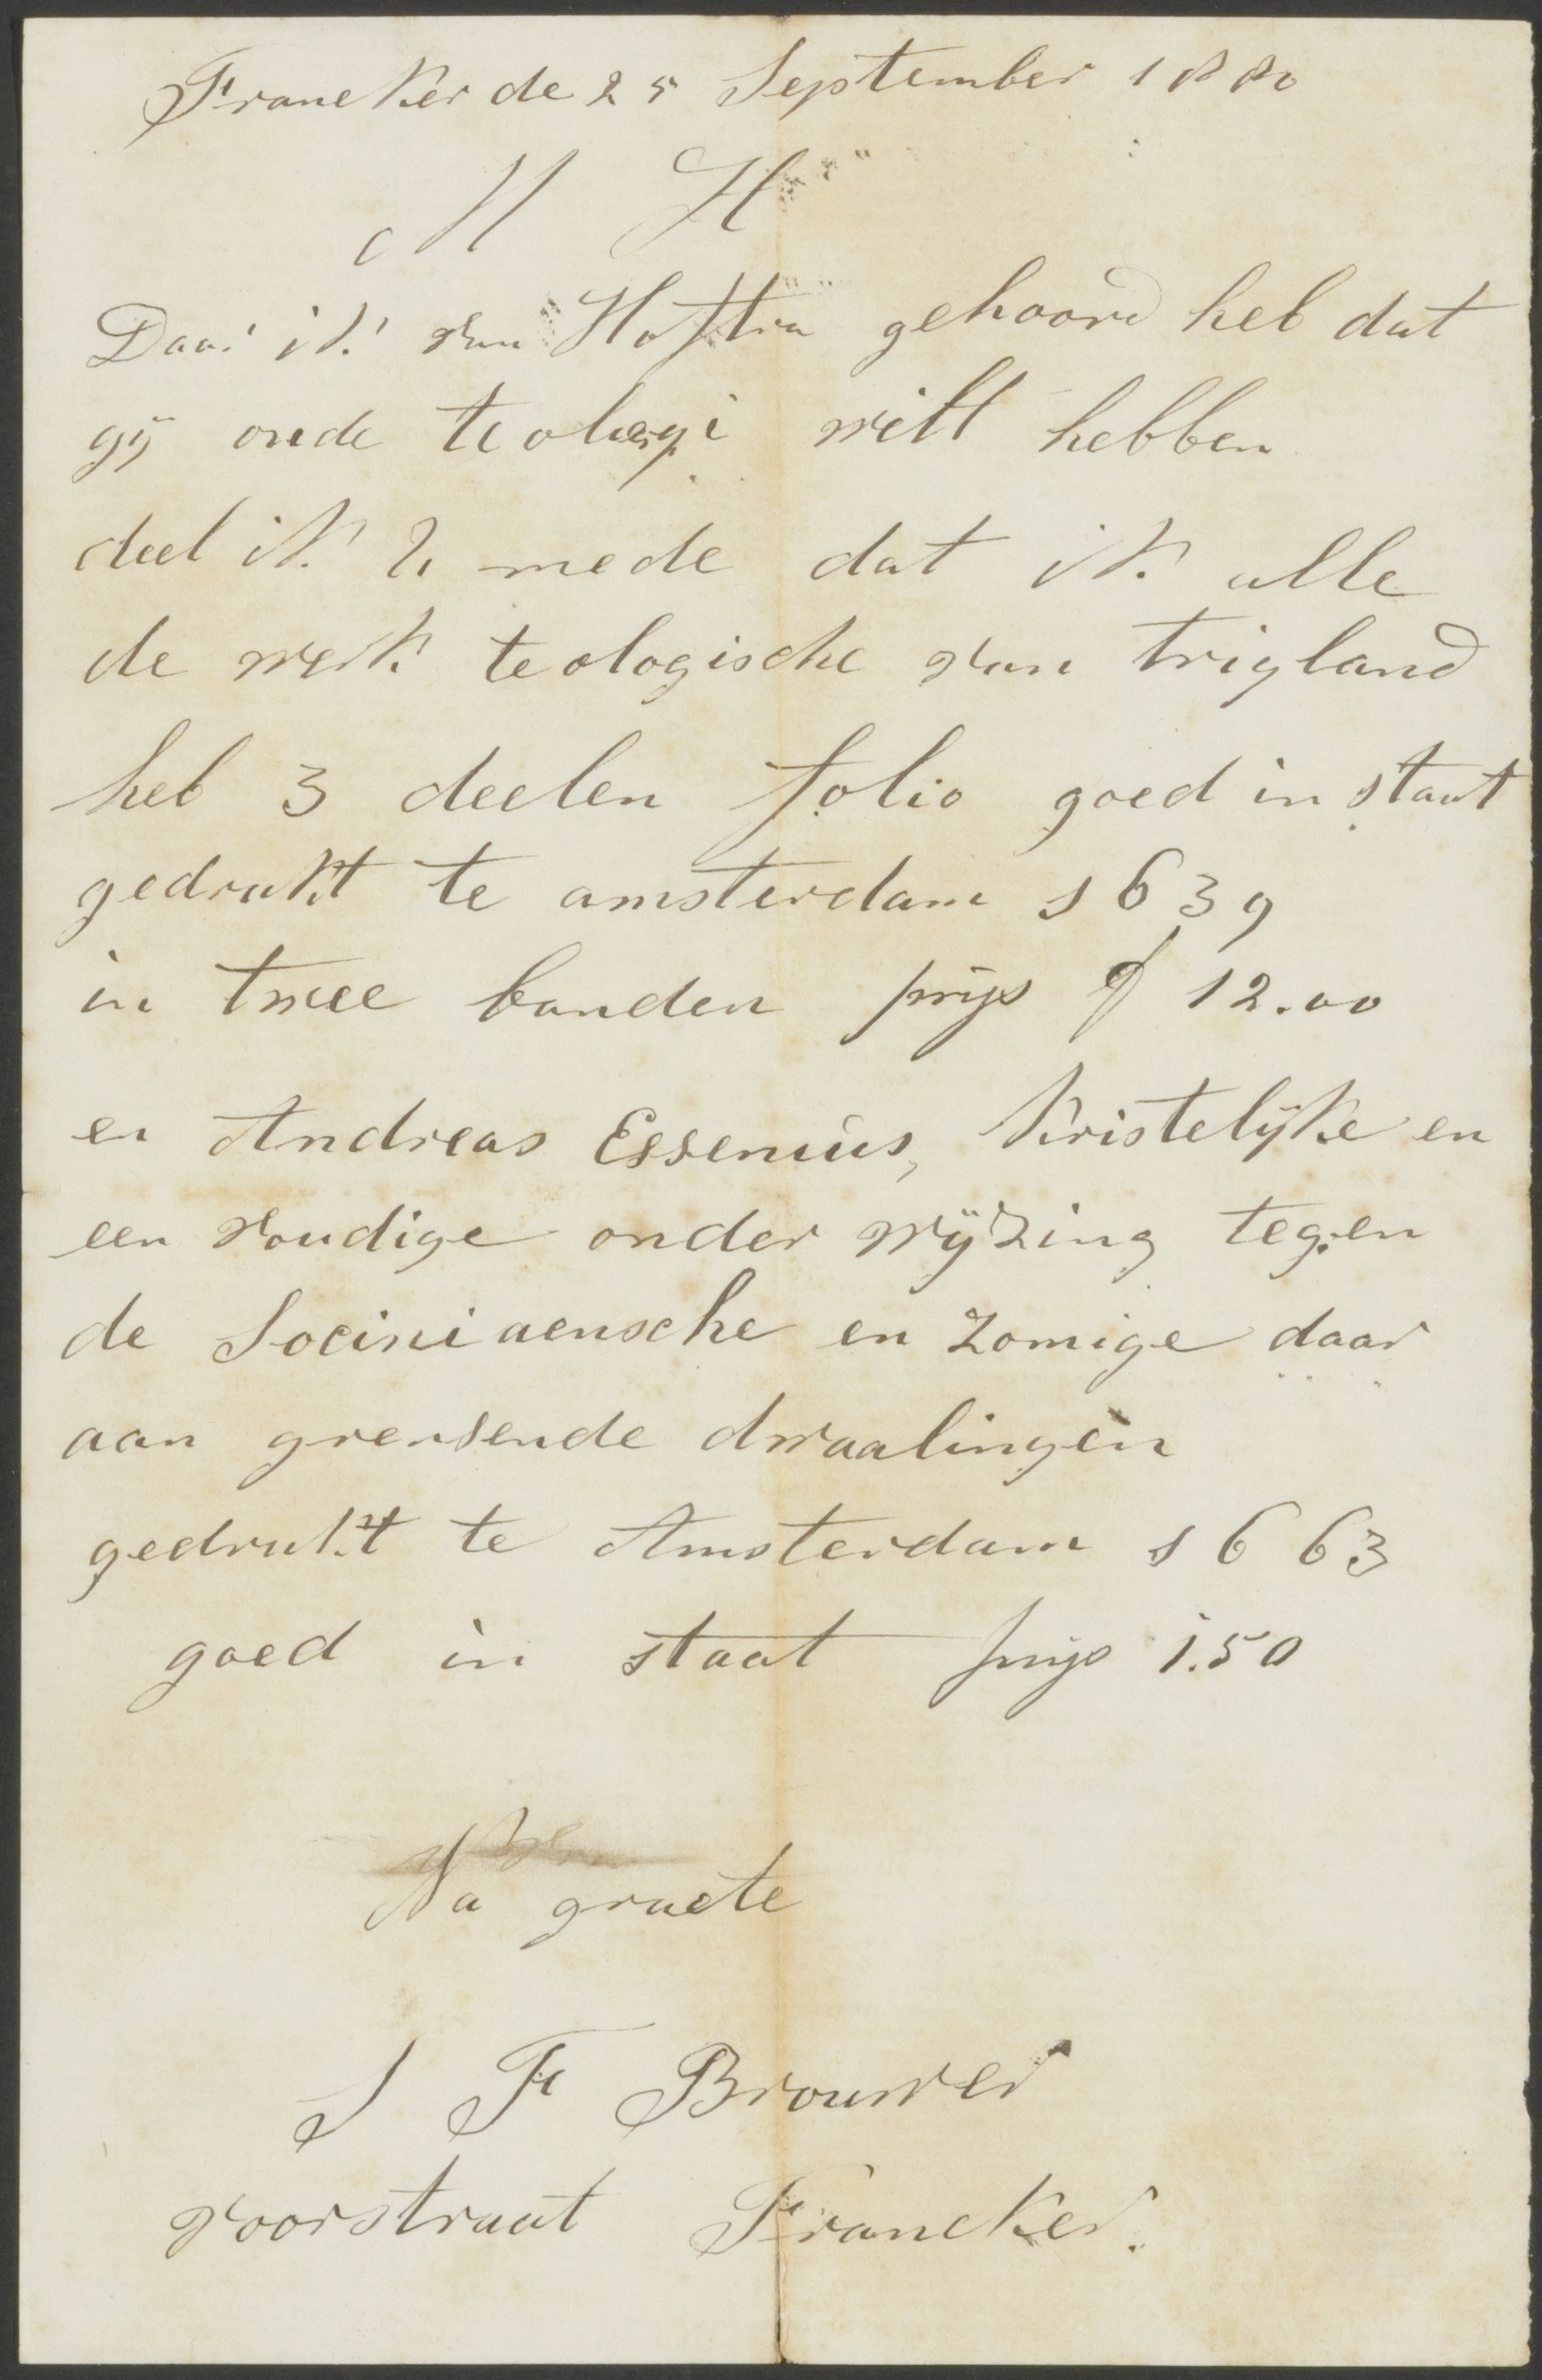 Franeker de 25 September 1880
M H
Daar ik van Hofstra gehoord heb dat
gij oude teologi wilt hebben
deel ik U mede dat ik alle
de werk teologische van trigland
heb 3 deelen folio goed in staat
gedrukt te amsterdam 1639
in twee banden prijs f 12.00
en Andreas Essenius, Kristelijke en
een voudige onder wijzing tegen
de Sociniaensche en zomige daar
aan grensende dwaalingen
gedrukt te Amsterdam 1663
goed in staat prijs 1.50
Na groete
S F Brouwer
voorstraat Franeker.